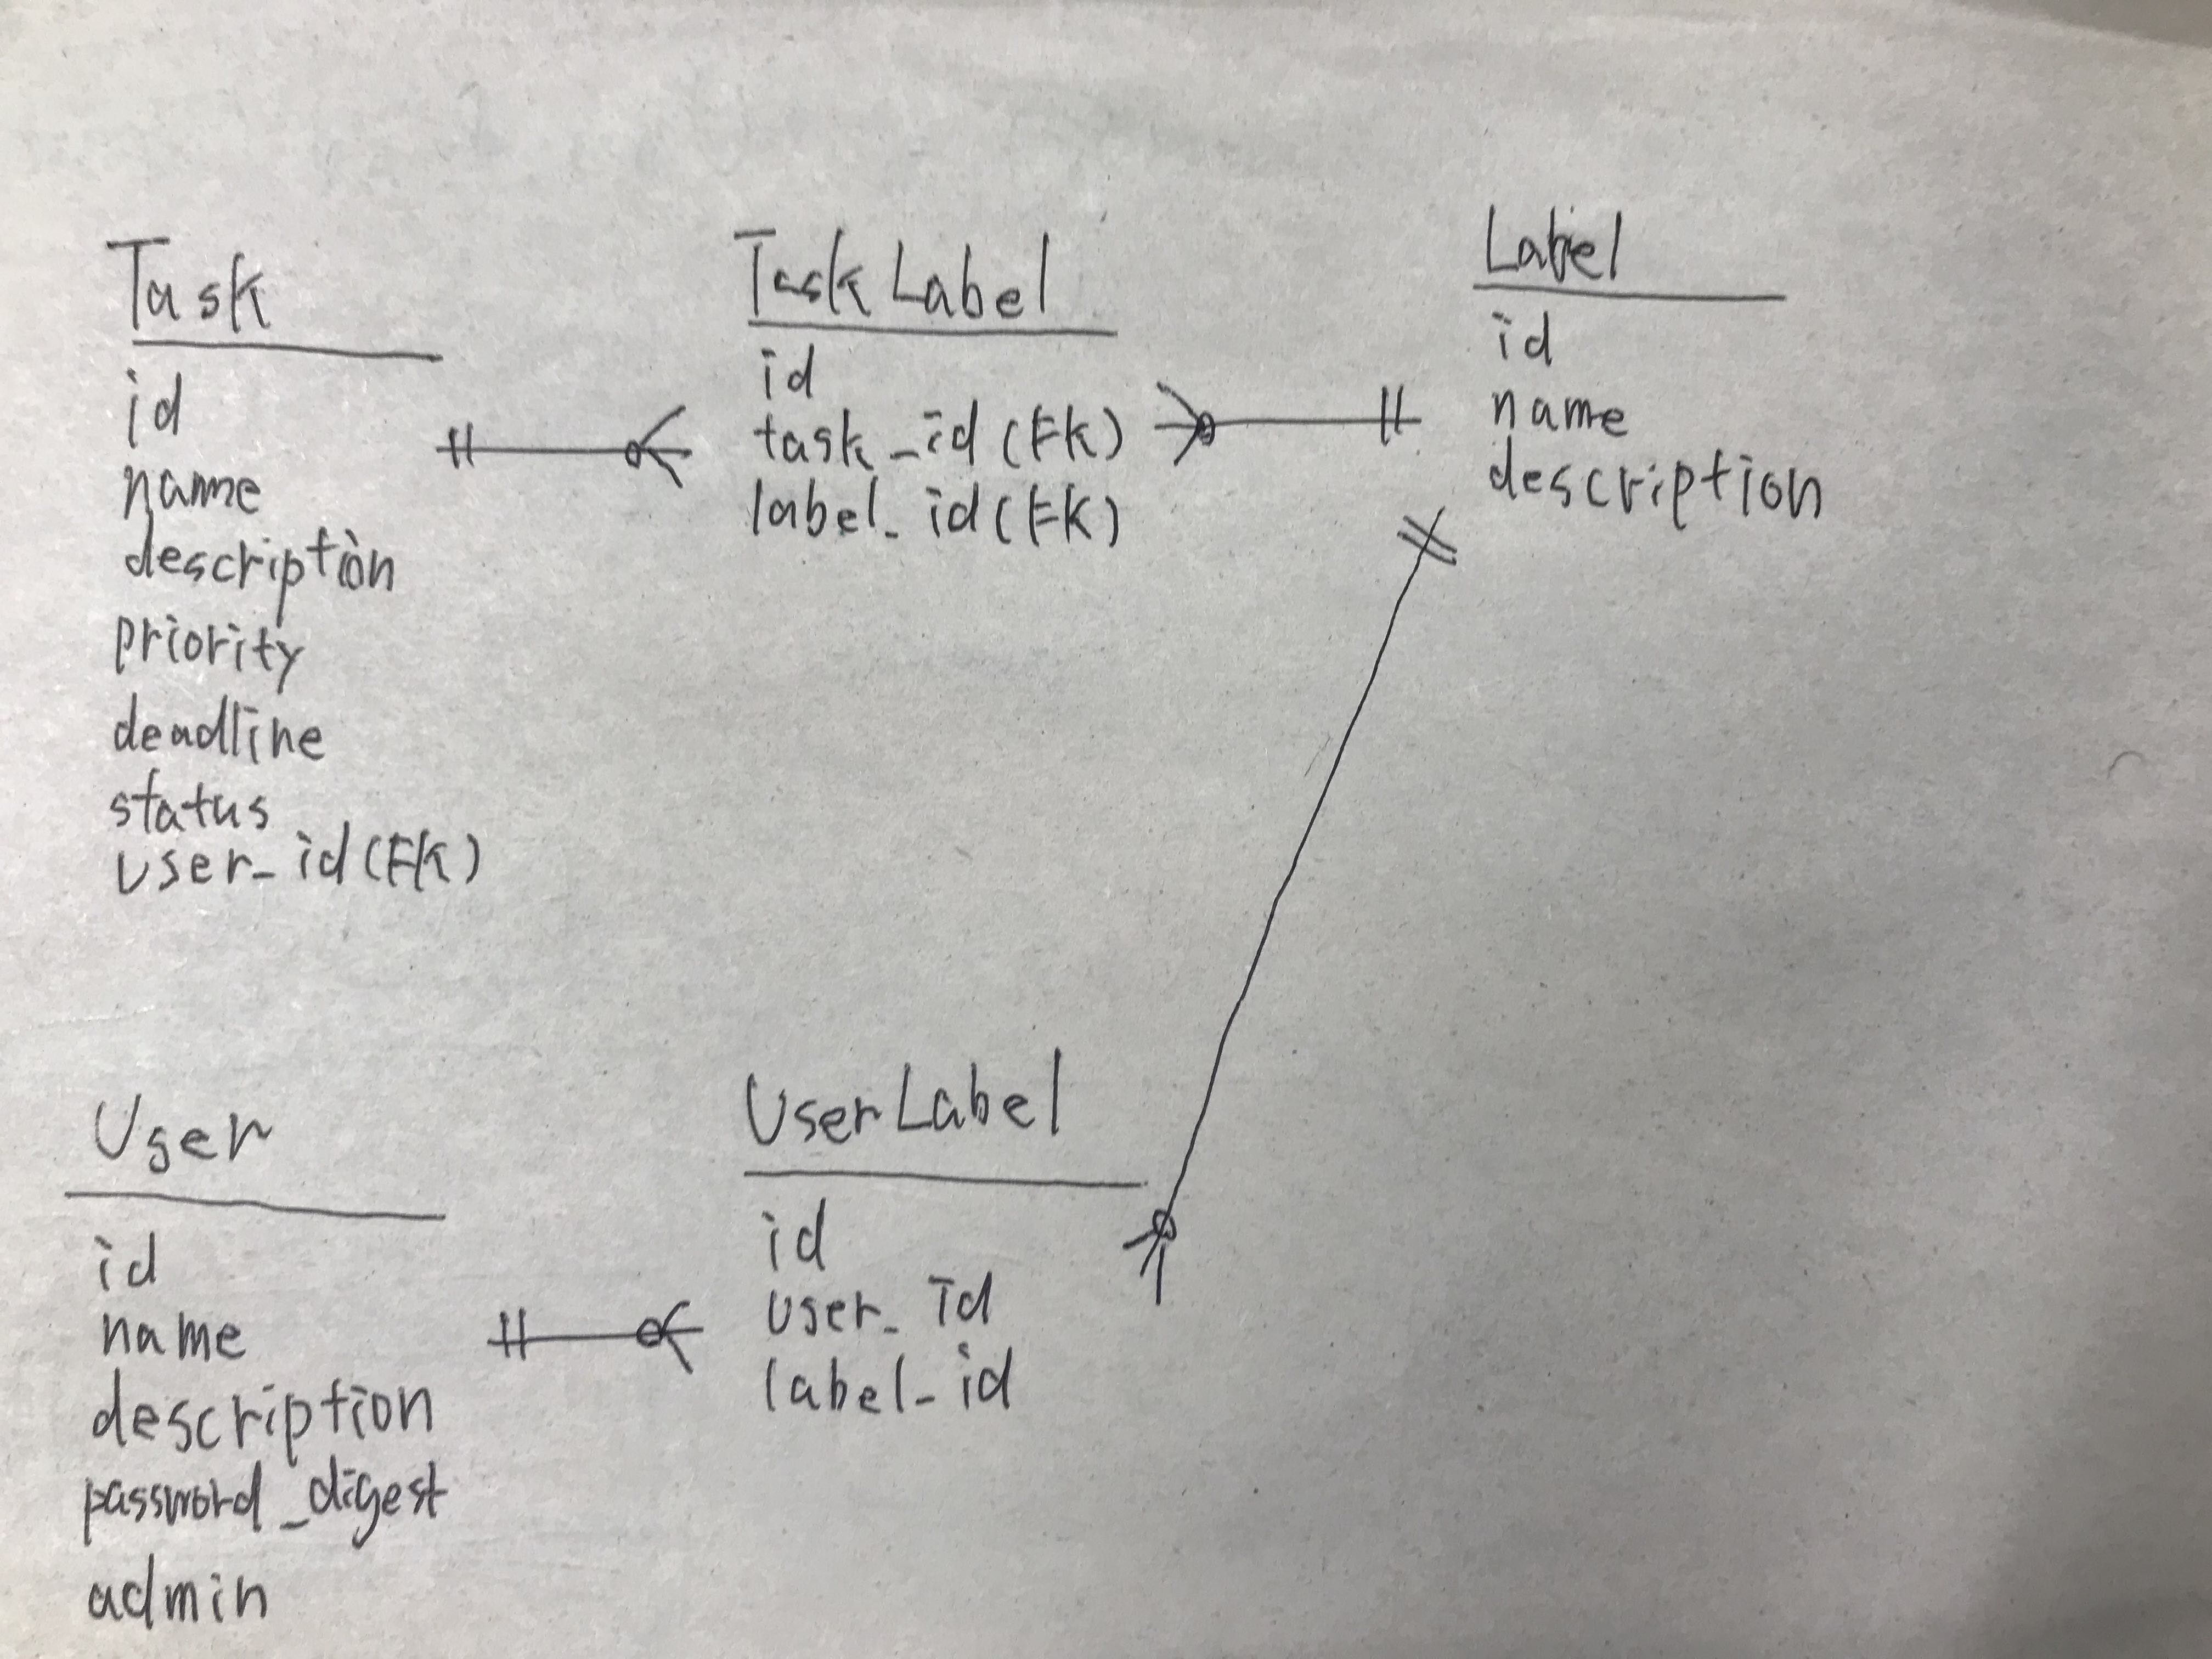 Task
id
name
description
priority
deadline
status
user_id(FK)
TaskLabel
id
task_id(FK)
label_id(FK)
Label
id
name
description
User
id
name
description
password_digest
admin
UserLabel
id
user_id
label_id